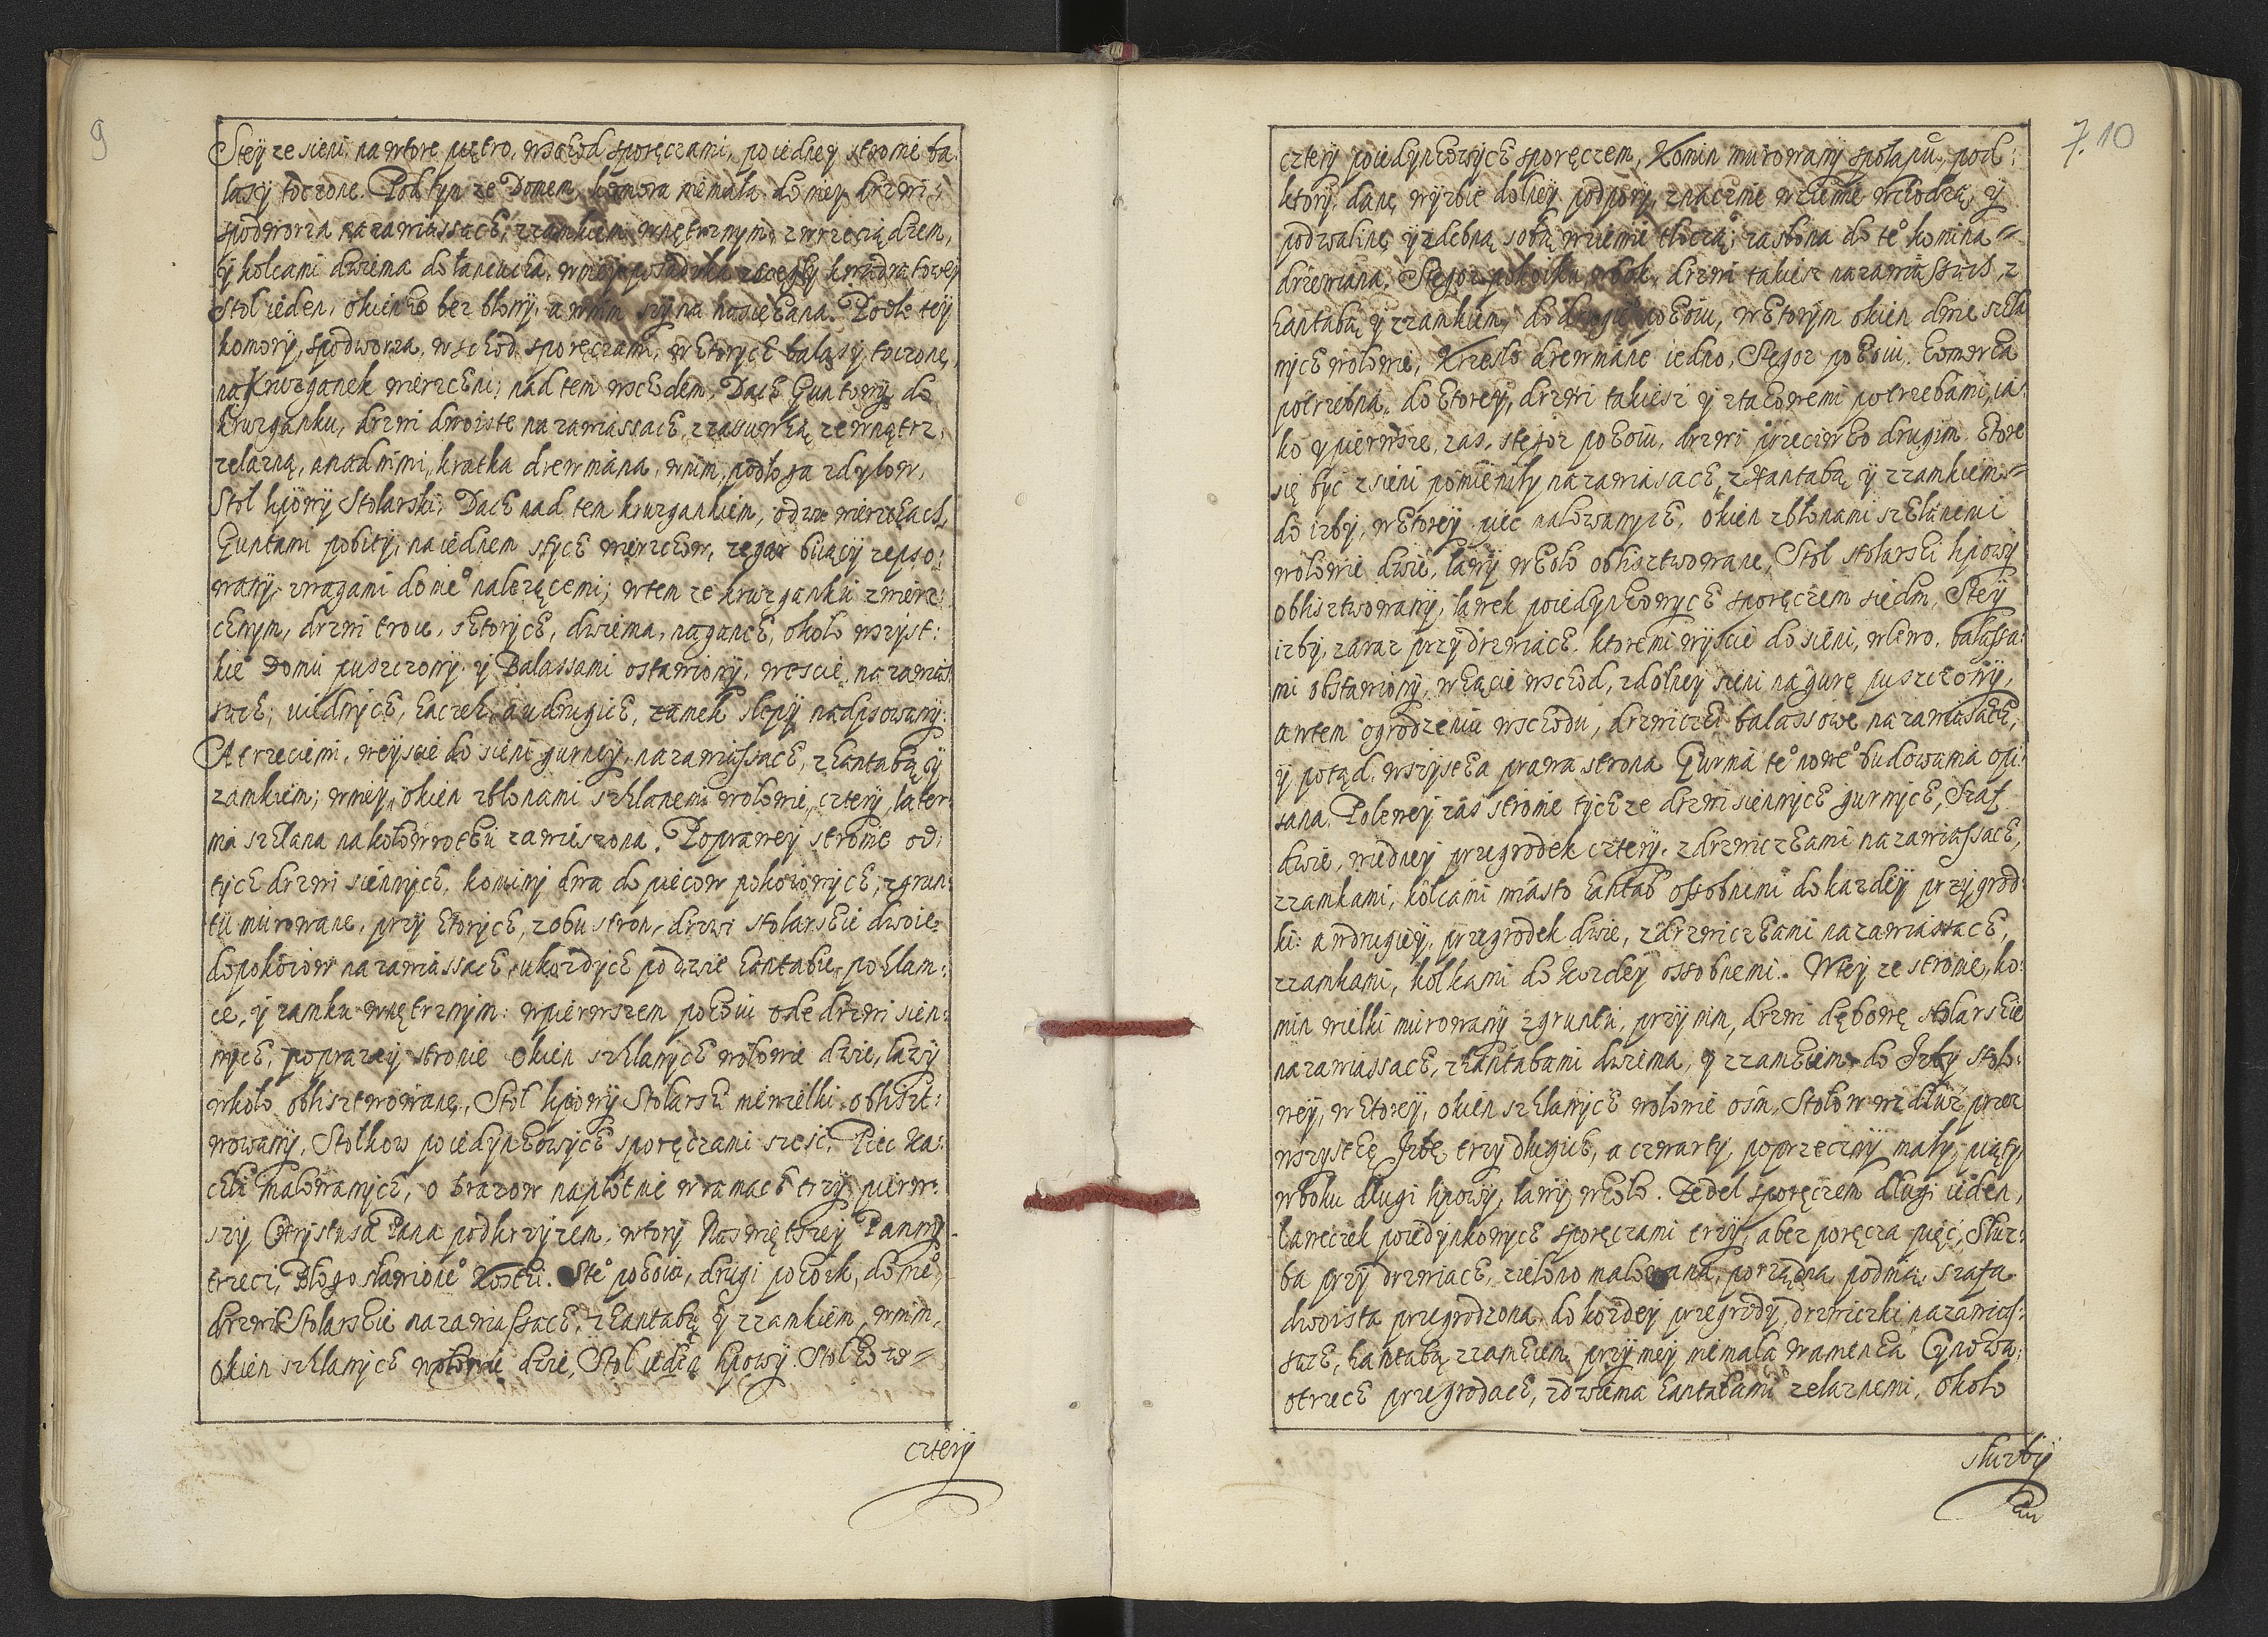 9
Steÿ ze sieni, na wtore piętro, wschod sporęczami, po iedneÿ stronie ba:
lasÿ toczone. Pod tym ze Domem komora niemała do nieÿ drzwi
spodworza na zawiassach, zzamkiem wnętrznym, zwrzeciądzem,
ÿ kolcami dwiema do łancucha, wnieÿ posadzka zcegłÿ kwadratoweÿ
Stoł ieden, okienko bez błonÿ, a wnim szÿna
Podle teÿ
komorÿ, spodworza, wschod sporęczami, wktorÿch balasÿ toczone,
na Kruzganek wierzchni; nad tem wschodem, Dach Guntowÿ do
kruzganku, drzwi dwoiste na zawiassach, zzasuwką zewnątrz,
zelazną, a nad nimi, kratka drewniana, wnim, podłoga zdÿlow,
Stoł lipowÿ Stolarski, Dach nad tem kruzgankiem, o dwu wierzchach,
Guntami pobitÿ, na iednem stÿch wierzchow, zegar biiącÿ zepso:
wanÿ, zwagami do nieº nalezącemi; wtem ze kruzganku zwierz:
chnym, drzwi troie, sktorÿch, dwiema, na ganek, około wszÿst:
kieº Domu puszczonÿ ÿ Balassami ostawionÿ, weście na zawias
sach; uiednÿch, haczek, a udrugich, zamek slepÿ nadpsowanÿ:
A trzeciemi, weÿscie do sieni gurneÿ, na zawiassach, zhantabą ÿ
zamkiem; wnieÿ, okien zbłonami szklanemi wołowie, czterÿ, later:
nia szklana na kołowrotku zawieszona. Po praweÿ stronie od
tÿch drzwi siennÿch, kominÿ dwa do piecow pokoiowÿch, zgrun:
tu murowane, przÿ ktorÿch, zobu stron, drzwi stolarskie dwoie
do pokoiow na zawiassach, ukozdÿch po dwie hantabie, po klam:
ce, ÿ zamku wnętrznÿm: wpierwszem pokoiu ode drzwi sien:
nÿch, po praweÿ stronie okien szklanÿch wołowie dwie, ławÿ
wkoło oblisztwowane, Stoł lipowÿ Stolarski niewielki obliszt:
wowanÿ, Stołkow poiedÿnkowÿch sporęczami szesć, Piec ka:
chli malowanÿch, obrazow na płotnie wramach trzÿ, pierw:
szÿ Chrystusa Pana podkrzÿzem, wtorÿ Naswiętszeÿ Pannÿ
trzeci, Błogosławioneº Kostki. Steº pokoiu, drugi pokoik, do nieº
drzwi Stolarskie na zawiassach, zhantabą ÿ zzamkiem, wnim,
okien szklanÿch wołowie dwie, Stoł ieden lipowÿ. Stołkow
czterÿ
7. 10
czterÿ poiedÿnkowÿch sporęczem, Komin murowanÿ społapu, pod:
ktorÿ, dane wÿzbie dolneÿ podporÿ, znacznie wziemie wchodzą, ÿ
podwalinę ÿ zdebną sobą wziemie tłoczą; zasłona do teº komina
drzewiana. Stegoz pokoiku wbok, drzwi takiesz na zawiassach, z
hantabą ÿ zzamkiem, do drugieº pokoiu, wktorÿm okien dwie szkla
nÿch wołowie, Krzesło drewniane iedno, Stegoz pokoiu, komorka
potrzebna, do ktoreÿ, drzwi takiesz ÿ ztakowemi potrzebami, ia:
ko ÿ pierwsze, zas, stegoz pokoiu, drzwi przeciwko drugim ktore
się bÿć zsieni pomieniłÿ na zawiasach, zHantabą ÿ zzamkiem
do izbÿ, wktoreÿ piec malowanÿch, okien zbłonami szklanemi
wołowie dwie, ławÿ wkoło oblisztwowane, Stoł stolarski lipowÿ
oblisztwowanÿ, ławek poiedÿnkowÿch sporęczem siedm, Steÿ
izbÿ, zaraz przÿ drzwiach, ktoremi wÿscie do sieni, wlewo, balassa:
mi obstawionÿ, wkącie wschod, zdolneÿ sieni na gurę puszczonÿ,
a wtem ogrodzeniu wschodu, drzwiczki balassowe na zawiasach,
ÿ potąd, wszÿstka prawa strona Gurna teº noweº budowania opi:
sana. Poleweÿ zas stronie tÿch ze drzwi siennÿch gurnÿch, Szaf
dwie, wiedneÿ przegrodek czterÿ, zdrzwiczkami na zawiassach,
zzamkami, kolcami miasto hantab ossobnemi do kazdeÿ przÿgrod:
ki: a wdrugieÿ, przegrodek dwie, zdrzwiczkami na zawiassach,
zzamkami, kolkami do kozdeÿ ossobnemi. Wteÿ ze stronie, ko:
min wielki murowanÿ zgruntu, przÿ nim, drzwi dębowe stolarskie
na zawiassach, zhantabami dwiema, ÿ zzamkiem do Izbÿ stoło:
weÿ, wktoreÿ, okien szklanÿch wołowie ośm, Stołow wzdłuż przez
wszÿstkę Izbę trzÿ długich, a czwartÿ poprzecznÿ małÿ, piątÿ,
wboku długi lipowÿ, ławÿ wkoło. Zedel sporęczem długi ieden,
ławeczek poiedÿnkowÿch sporęczami trzÿ, a bez poręcza pięć, Słuz:
ba przÿ drzwiach, zielono malowana, porządna, podnią, szafa
dwoista przegrodzona do kozdeÿ przegrodÿ, drzwiczki na zawias:
sach, hantabą zzamkiem przÿ nieÿ niemała wanienka Cynowa,
o trzech przegrodach, zdwiema hantabami zelaznemi, około
słuzbÿ